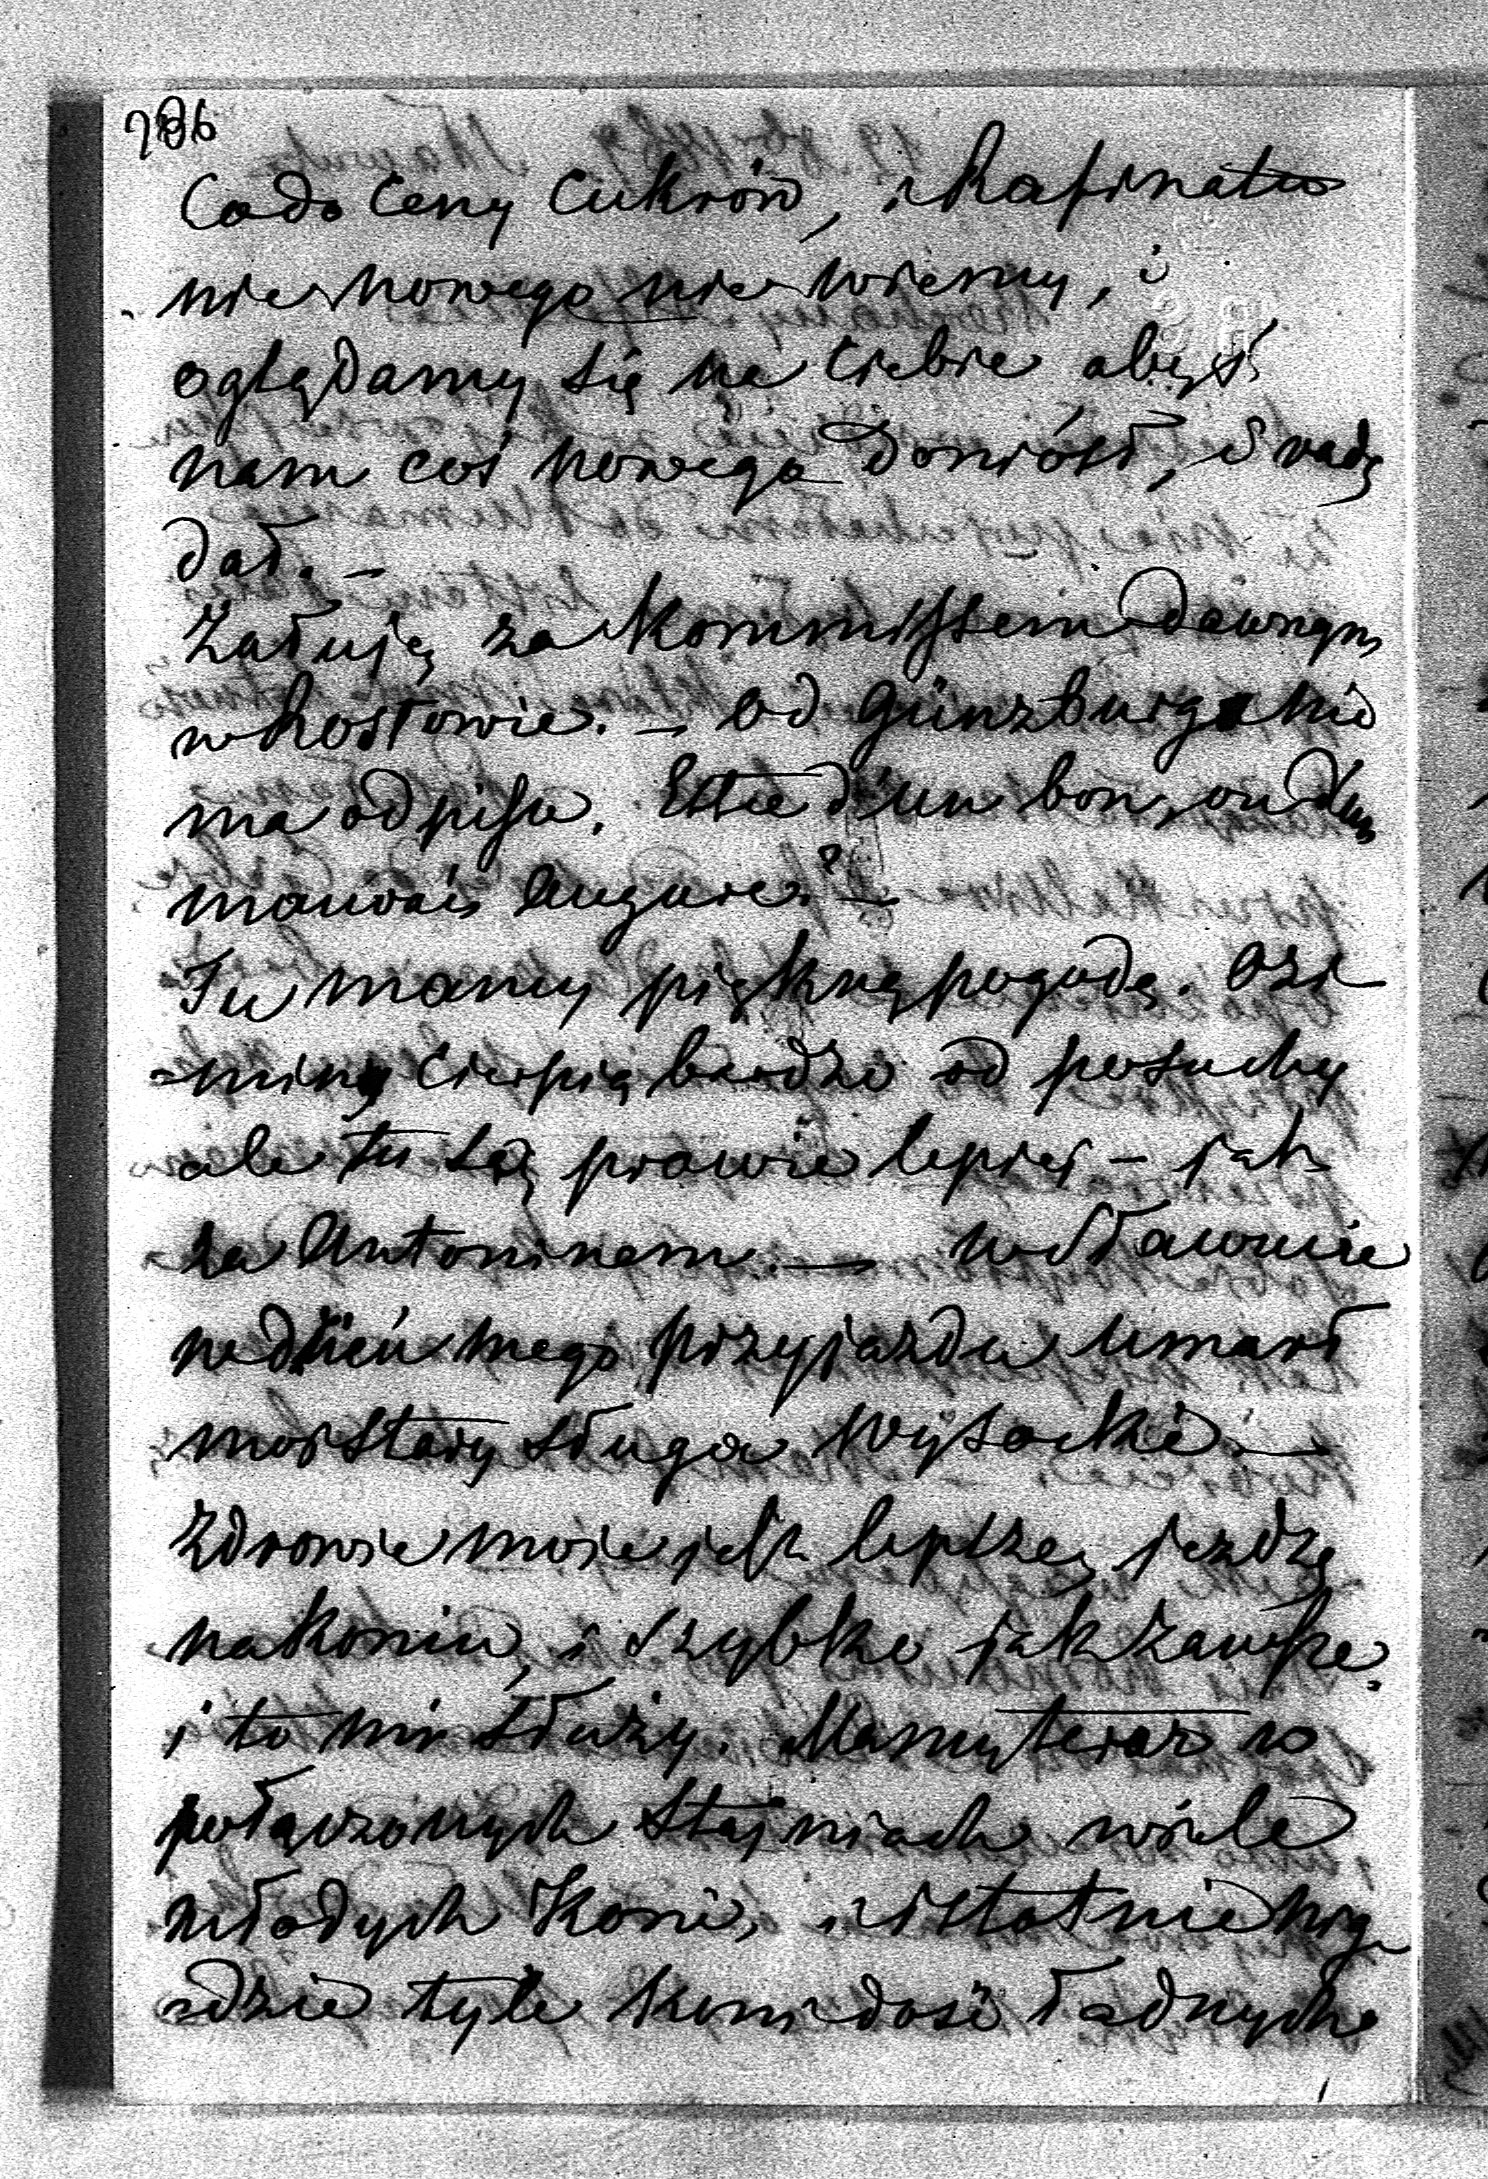 286
Co do Ceny Cukrów, i Rafinatu
nic nowego nie wiemy, i
oglądamy się na Ciebie abyś
nam coś nowego doniósł, i radę
dał. –
Żałuję za Kommissem dawnym
w Rostowie. – Od Günzburga nic
ma odpisu. Est ce d'un bon, ou d'un
mauvais Augure? –
Tu mamy piękną pogodę. Ozi-
-miny Cierpią bardzo od posuchy
ale tu są prawie lepiej – jak
za Antoninem. — W Sławucie
w dzień mego przyjazdu umarł
mój stary sługa Wysocki. —
Zdrowie moje jest lepsze, jeżdżę
na koniu, i szybko jak zawsze,
i to mi służy. Mamy teraz w
połączonych Stajniach wiele
młodych Koni, i istotnie nig-
-dzie tyle koni dość ładnych